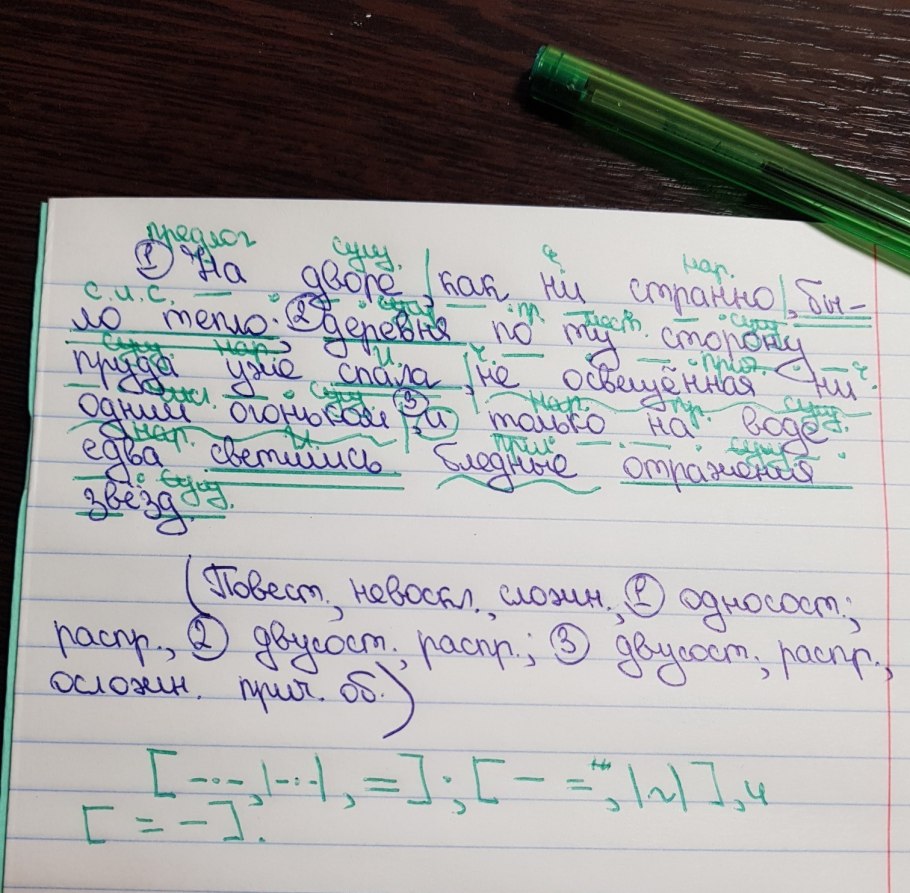 предлог сущ. ч. нар.
① На дворе, как ни странно, бы-
с.и.с. сущ. пр. мест. сущ.
ло тепло; ② деревня по ту сторону
сущ. нар. ч. прил. ч.
пруда уже спала, не освещённая ни
сущ. нар. пр. сущ.
одним огоньком, ③ и только на воде
нар. прил. сущ.
едва светились бледные отражения
сущ.
звёзд.
(Повест., невоскл., сложн., ① односост.;
распр., ② двусост., распр.; ③ двусост., распр.,
осложн. прич. об.)
[-·-·-, |-·-|, =]; [- =, |~|], и
[= -].